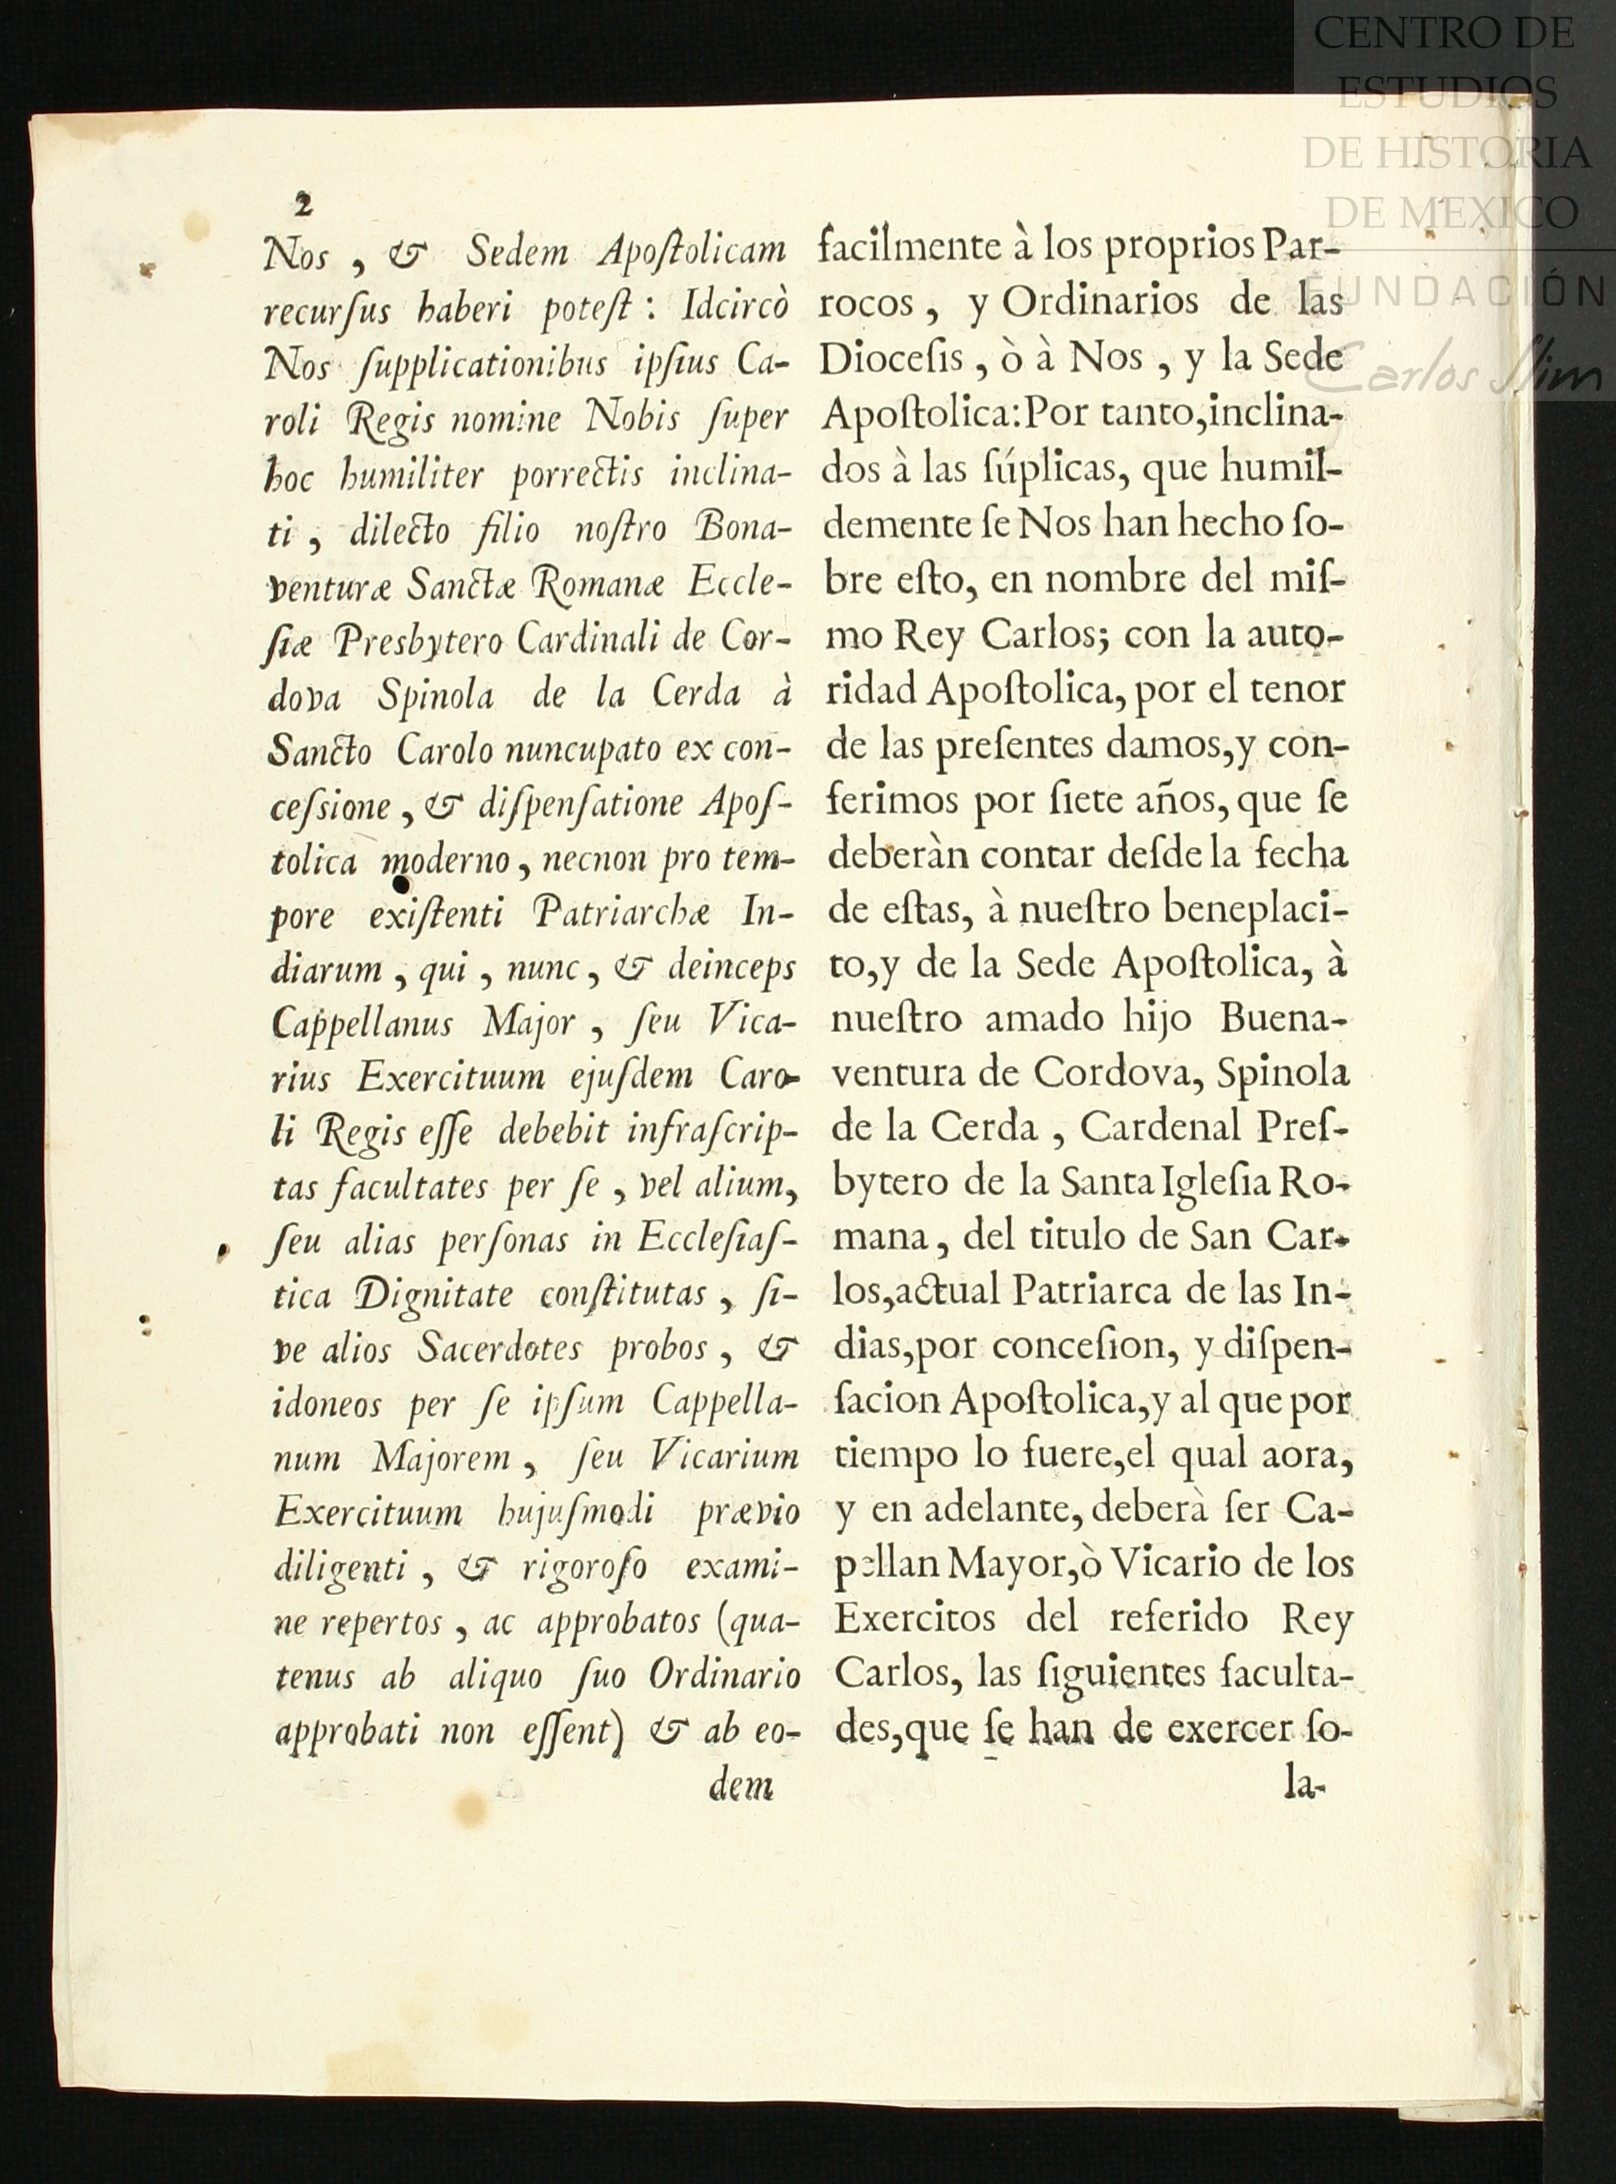 2
Nos , & Sedem Apoſtolicam
recurſus haberi poteſt : Idcircò
Nos ſupplicationibus ipſius Ca-
roli Regis nomine Nobis ſuper
hoc humiliter porrectis inclina-
ti , dilecto filio noſtro Bona-
venturæ Sanctæ Romanæ Eccle-
ſiæ Presbytero Cardinali de Cor-
dova Spinola de la Cerda à
Sancto Carolo nuncupato ex con-
ceſsione , & diſpenſatione Apoſ-
tolica moderno , necnon pro tem-
pore exiſtenti Patriarchæ In-
diarum , qui , nunc , & deinceps
Cappellanus Major , ſeu Vica-
rius Exercituum ejuſdem Caro-
li Regis eſſe debebit infraſcrip-
tas facultates per ſe , vel alium,
ſeu alias perſonas in Eccleſiaſ-
tica Dignitate conſtitutas , ſi-
ve alios Sacerdotes probos , &
idoneos per ſe ipſum Cappella-
num Majorem , ſeu Vicarium
Exercituum hujuſmodi prævio
diligenti , & rigoroſo exami-
ne repertos , ac approbatos (qua-
tenus ab aliquo ſuo Ordinario
approbati non eſſent) & ab eo-
dem
facilmente à los proprios Par-
rocos , y Ordinarios de las
Dioceſis , ò à Nos , y la Sede
Apoſtolica:Por tanto,inclina-
dos à las ſúplicas, que humil-
demente ſe Nos han hecho ſo-
bre eſto, en nombre del miſ-
mo Rey Carlos; con la auto-
ridad Apoſtolica, por el tenor
de las preſentes damos,y con-
ferimos por ſiete años, que ſe
deberàn contar deſde la fecha
de eſtas, à nueſtro beneplaci-
to,y de la Sede Apoſtolica, à
nueſtro amado hijo Buena-
ventura de Cordova, Spinola
de la Cerda , Cardenal Preſ-
bytero de la Santa Igleſia Ro-
mana , del titulo de San Car-
los,actual Patriarca de las In-
dias,por conceſion, y diſpen-
ſacion Apoſtolica,y al que por
tiempo lo fuere,el qual aora,
y en adelante, deberà ſer Ca-
pellan Mayor,ò Vicario de los
Exercitos del referido Rey
Carlos, las ſiguientes faculta-
des,que ſe han de exercer ſo-
la-
CENTRO DE
ESTUDIOS
DE HISTORIA
DE MEXICO
FUNDACIÓN
Carlos Slim